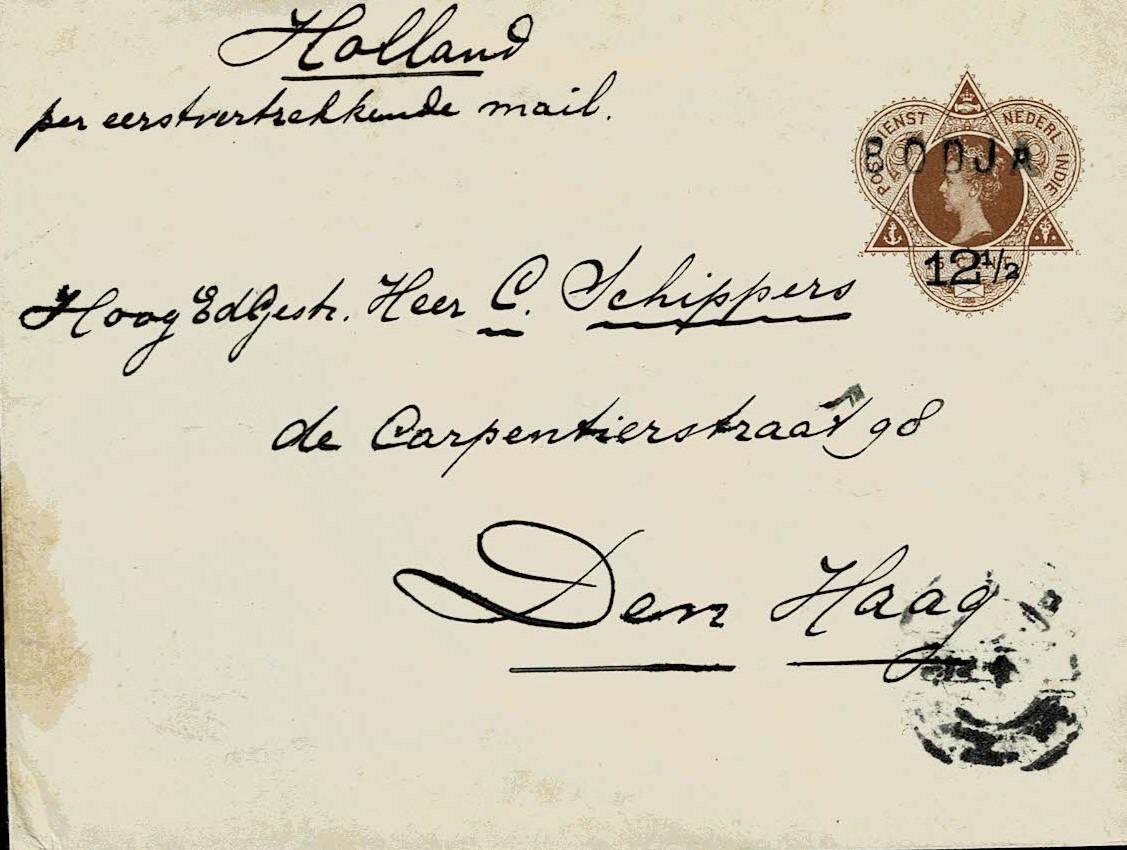 Holland
per eerstvertrekkende mail.
POSTDIENST NEDERL-INDIE
BODJA
12½
HoogEdGestr. Heer C. Schippers
de Carpentierstraat 98
Den Haag